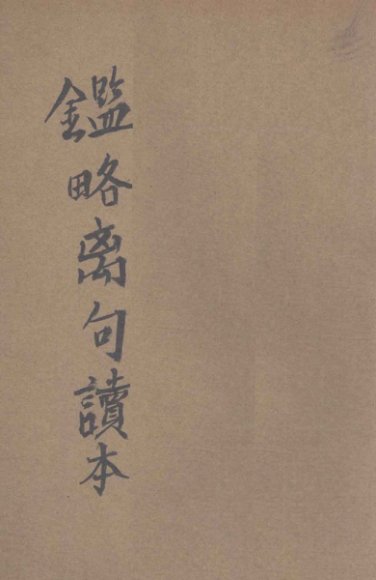 鑑略离句讀本